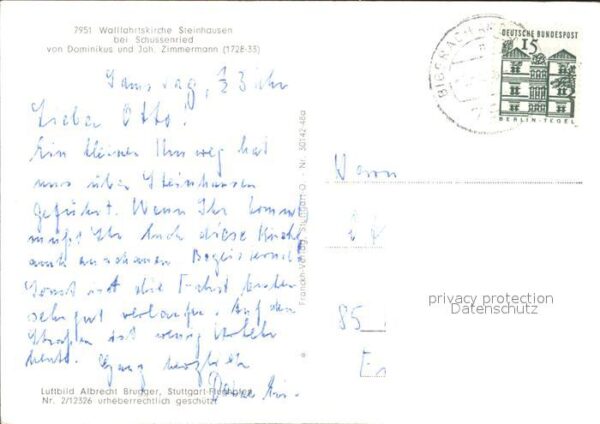 7951 Wallfahrtskirche Steinhausen
bei Schussenried
von Dominikus und Joh. Zimmermann (1728-33)
DEUTSCHE BUNDESPOST
15
BERLIN-TEGEL
Samstag, ½ 3 Uhr
Lieber Otto!
Ein kleiner Umweg hat
uns über Steinhausen
geführt. Wenn Ihr kommt
müßt Ihr Euch diese Kirche
auch anschauen
Sonst ist die Fahrt bisher
sehr gut verlaufen. Auf den
Straßen ist wenig Verkehr
heute. Ganz herzlich
Deine
Herrn
85
Franckh-Verlag, Stuttgart-O. - Nr. 30142-48a
privacy protection
Datenschutz
Luftbild Albrecht Brugger, Stuttgart-Flughafen
Nr. 2/12326 urheberrechtlich geschützt